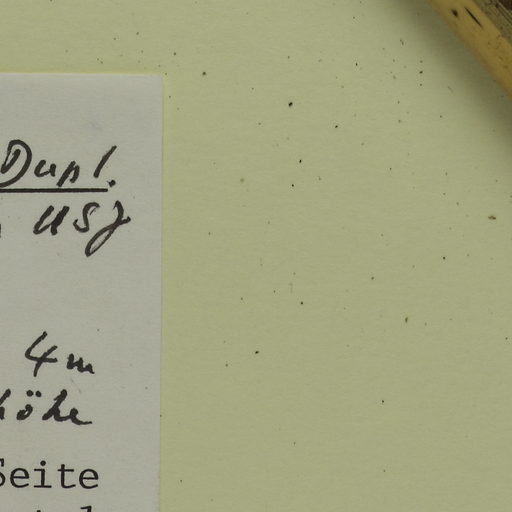 Dupl.
USJ
4m
höhe
Seite